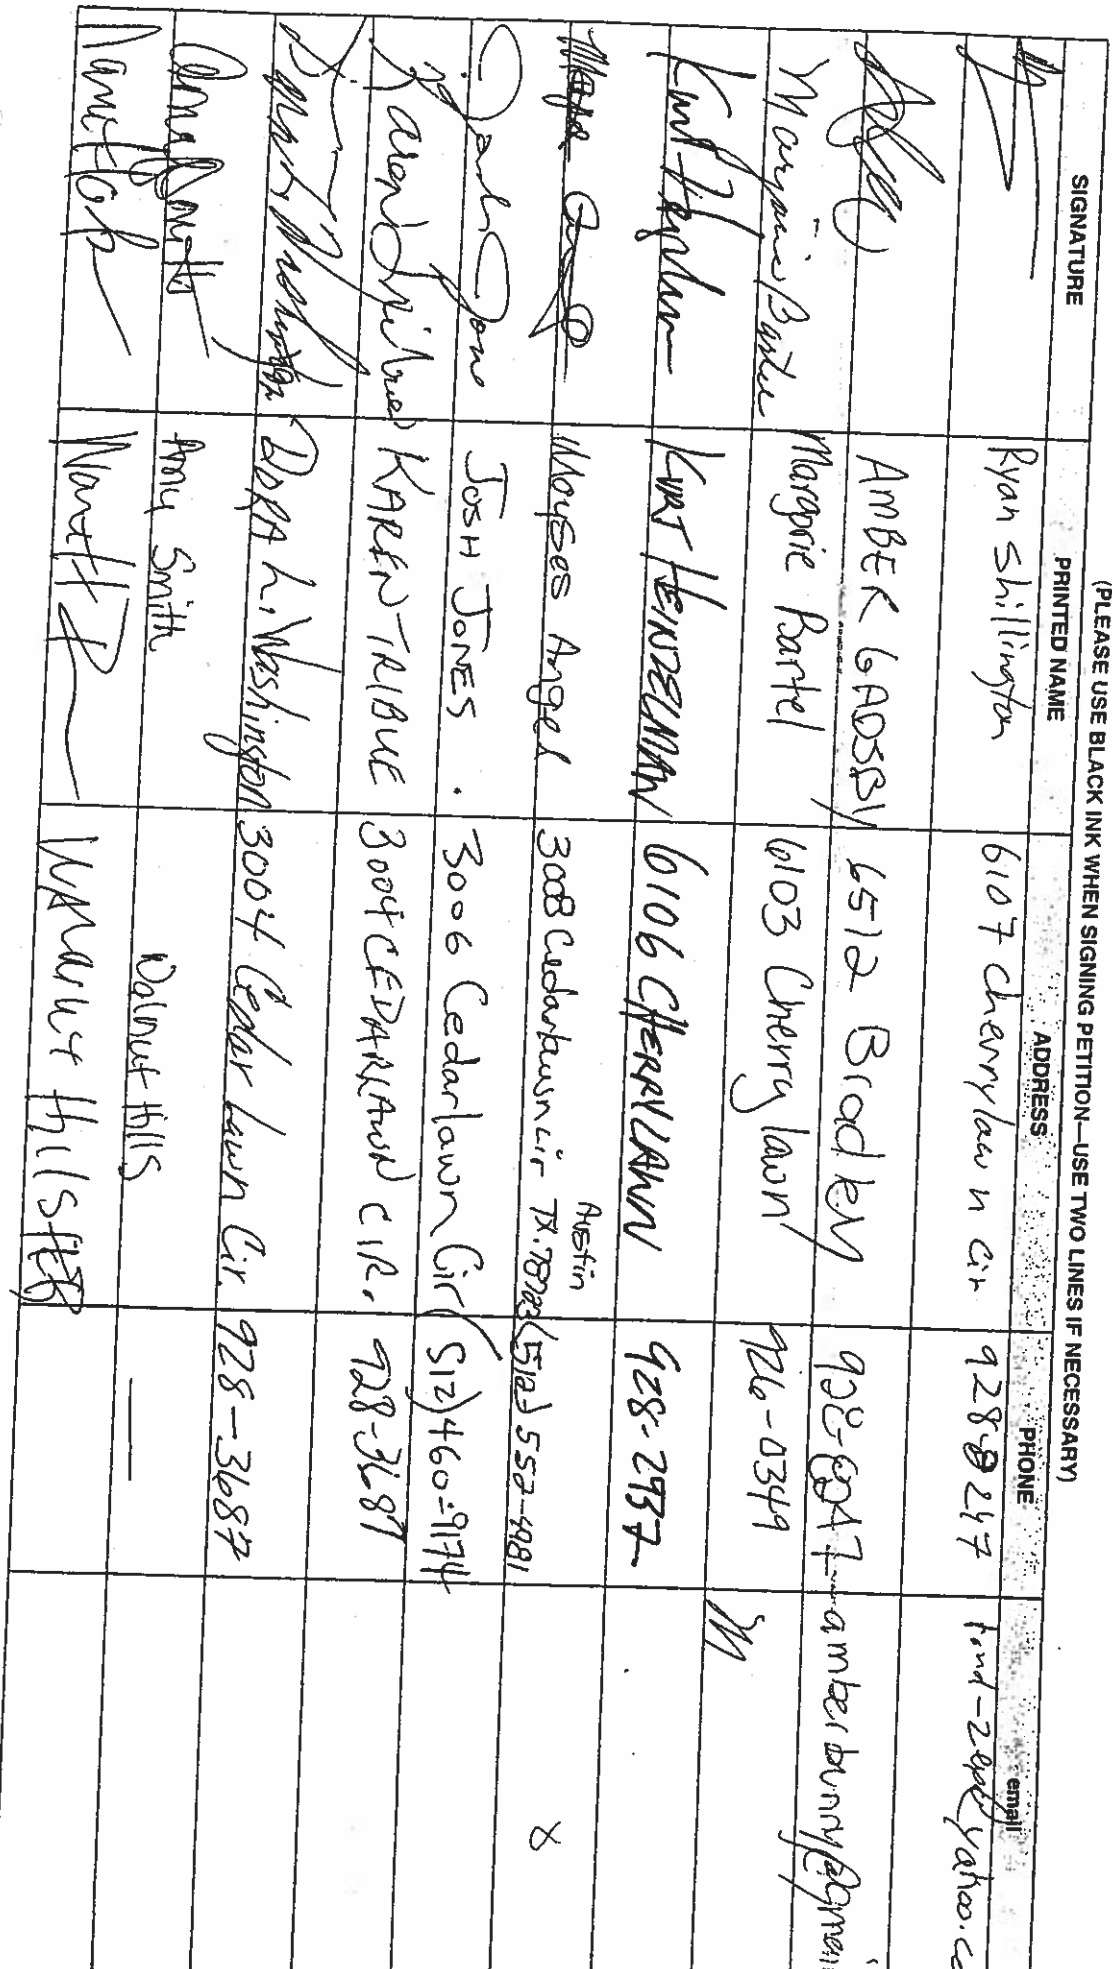 (PLEASE USE BLACK INK WHEN SIGNING PETITION—USE TWO LINES IF NECESSARY)
SIGNATURE PRINTED NAME ADDRESS PHONE email
Ryan Shillington 6107 cherrylawn cir 928-8247
AMBER GADSBY 6512 Bradley
Marjorie Bartel Marjorie Bartel 6103 Cherrylawn 926-0349
KURT HEINZELMAN 6106 CHERRYLAWN 928-2937
Moyses Angel 3008 Cedarlawn Cir Austin TX. 78723 (512) 557-4981
Josh Jones JOSH JONES. 3006 Cedarlawn Cir (512) 460-9174
Karen Tribue KAREN TRIBUE 3004 CEDARLAWN CIR. 928-3687
Dora L. Washington 3004 Cedar Lawn Cir. 928-3687
Amy Smith Amy Smith Walnut Hills —
Walnut Hills
8